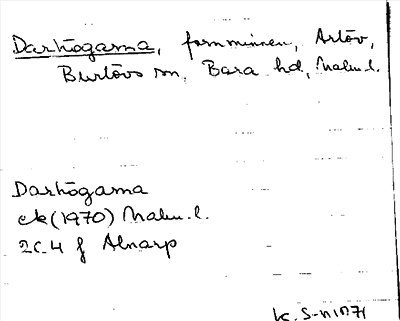 Darhögarna, fornminnen, Arlöv,
Burlövs sn, Bara hd, Malm.l.
Darhögarna
ek (1970) Malm.l.
2C:4 f Alnarp